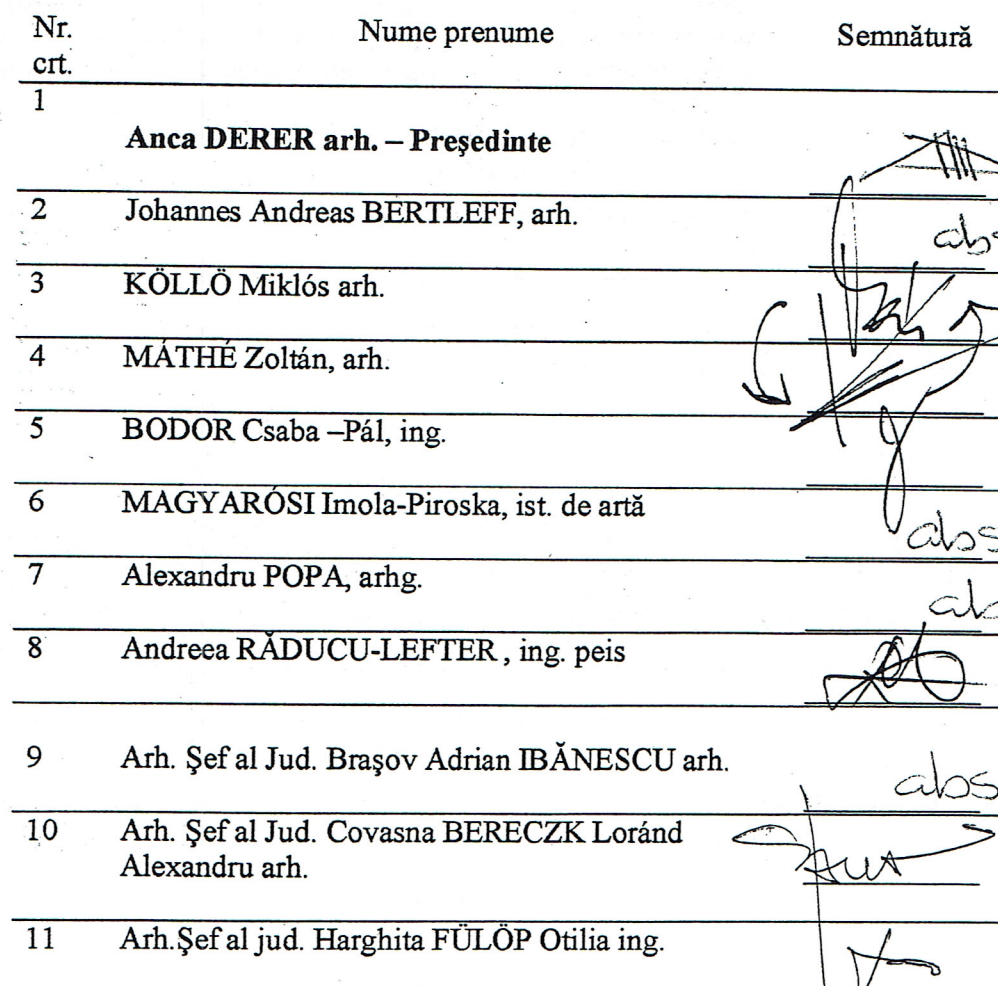 Nr. crt. Nume prenume Semnătură
1
Anca DERER arh. – Preşedinte
2 Johannes Andreas BERTLEFF, arh. abs
3 KÖLLŐ Miklós arh.
4 MÁTHÉ Zoltán, arh.
5 BODOR Csaba –Pál, ing.
6 MAGYARÓSI Imola-Piroska, ist. de artă abs
7 Alexandru POPA, arhg. ab
8 Andreea RĂDUCU-LEFTER , ing. peis
9 Arh. Şef al Jud. Braşov Adrian IBĂNESCU arh. abs
10 Arh. Şef al Jud. Covasna BERECZK Loránd
Alexandru arh.
11 Arh.Şef al jud. Harghita FÜLÖP Otilia ing.